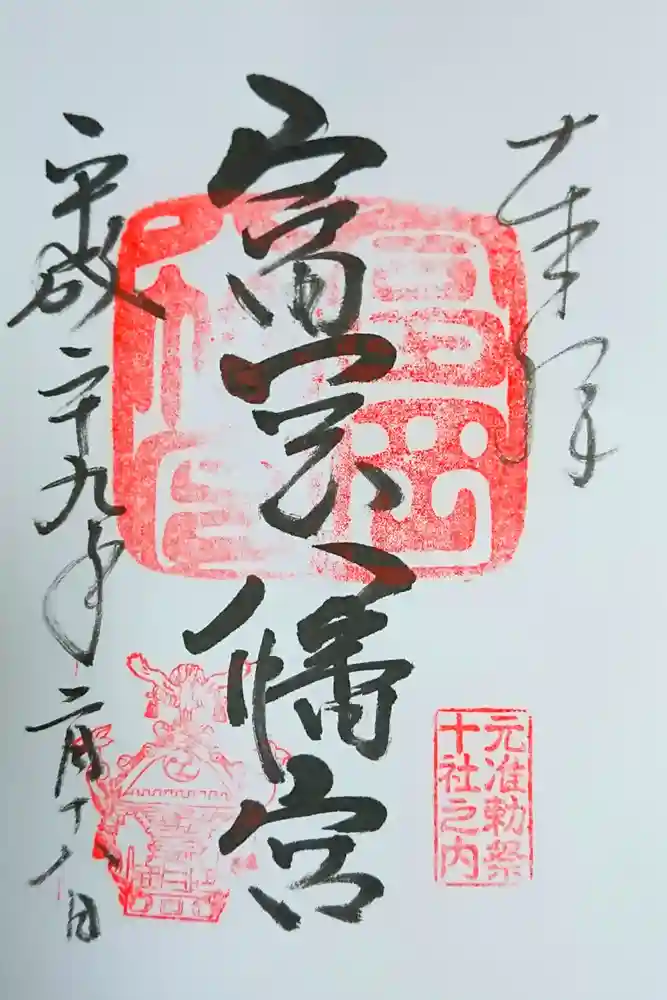 奉拝
富岡八幡宮
平成二十九年二月十八日
元准勅祭
十社之内